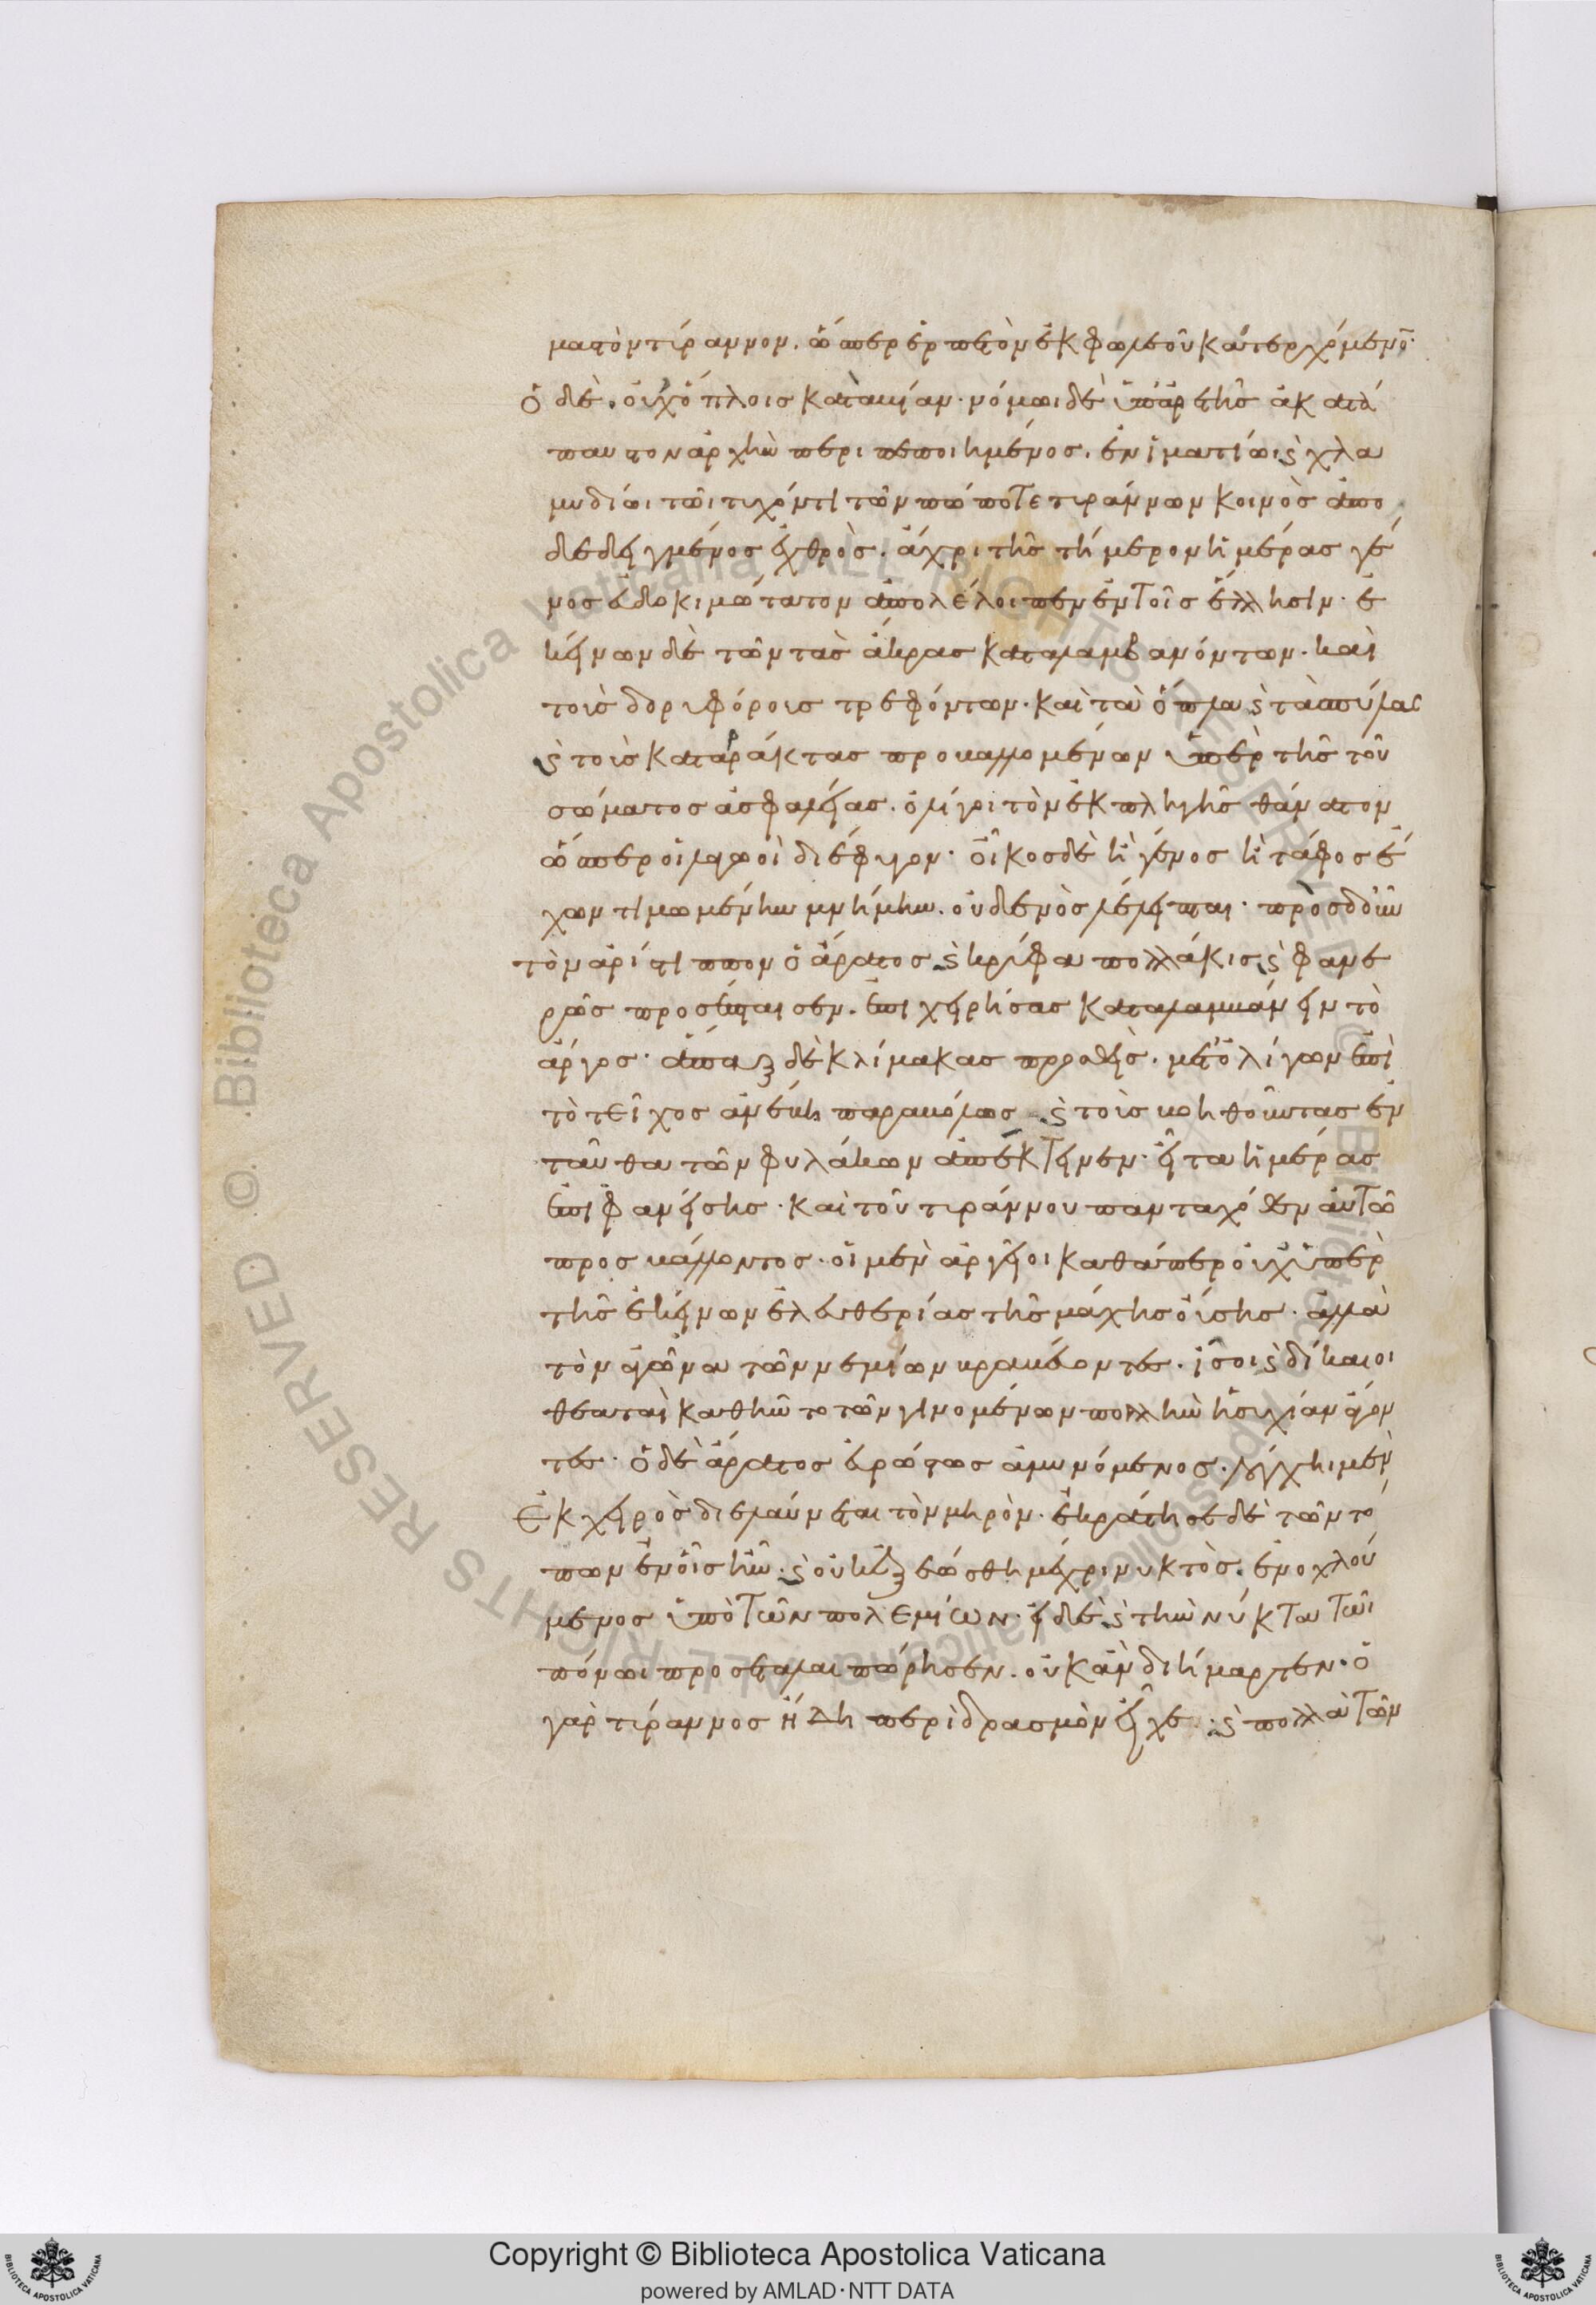 ματὸν τύραννον. ὥσπερ ἑρπετὸν ἐκ φωλεοῦ κατερχόμενο̄·
ὁ δὲ. οὐχ ὅπλοις κατὰ βίαν. νόμωι δὲ ὑπ' ἀρετῆς ἀκατά
παυτον ἀρχὴν περιπεποιημένος. ἐν ἱματίωι ϛ χλα
μυδίωι τῶι τυχόντι τῶν πώποτε τυράννων κοινὸς ἀπο
δεδειγμένος ἐχθρὸς. ἄχρι τῆς τήμερον ἡμέρας γέ
νος εὐδοκιμώτατον ἀπολέλοιπεν ἐν τοῖς ἕλλησιν. ἐ
κείνων δὲ τῶν τὰς ἄκρας καταλαμβανόντων. καὶ
τοὺς δορυφόρους τρεφόντων. καὶ τὰ ὅπλα ϛ τὰς πύλας
ϛ τοὺς καταρράκτας προβαλλομένων ὑπὲρ τῆς τοῦ
σώματος ἀσφαλείας. ὀλίγοι τὸν ἐκ πληγῆς θάνατον
ὥσπερ οἱ λαγωοὶ διέφυγον. οἶκος δὲ ἢ γένος ἢ τάφος ἔ
χων τιμωμένην μνήμην. οὐδενὸς λέλειπται. πρὸς δ' οὖν
τὸν ἀρίστιππον ὁ ἄρατος ϛ κρύφα πολλάκις ϛ φανε
ρῶς προσέπταισεν. ἐπιχειρήσας καταλαμβάνειν τὸ
ἄργος. ἅπαξ δὲ κλίμακας προσθεὶς. μετ' ὀλίγων ἐπὶ
τὸ τεῖχος ἀνέβη παραβόλως ϛ τοὺς βοηθοῦντας ἐν
ταῦθα τῶν φυλάκων ἀπέκτεινεν. εἶτα ἡμέρας
ἐπιφανείσης. καὶ τοῦ τυράννου πανταχόθεν αὐτῶ
προσβάλλοντος. οἱ μὲν ἀργεῖοι καθάπερ οὐχ ὑπὲρ
τῆς ἐκείνων ἐλευθερίας τῆς μάχης οὔσης. ἀλλὰ
τὸν ἀγῶνα τῶν νεμείων βραβεύοντες. ἴσοι ϛ δίκαιοι
θεαταὶ καθῆντο τῶν γινομένων πολλὴν ἡσυχίαν ἄγον
τες. ὁ δὲ ἄρατος εὐρώστως ἀμυνόμενος. λόγχηι μὲν
ἐκ χειρὸς διελαύνεται τὸν μηρὸν. ἐκράτησε δὲ τῶν τό
πων ἐν οἷς ἦν. ϛ οὐκ ἐξεώσθη μέχρι νυκτὸς. ἐνοχλού
μενος ὑπὸ τῶν πολεμίων. εἰ δὲ ϛ τὴν νύκτα τῶι
πόνωι προσεταλαιπώρησεν. οὐκ ἂν διήμαρτεν. ὁ
γὰρ τύραννος ἤδη περὶ δρασμὸν εἶχε. ϛ πολλὰ τῶν